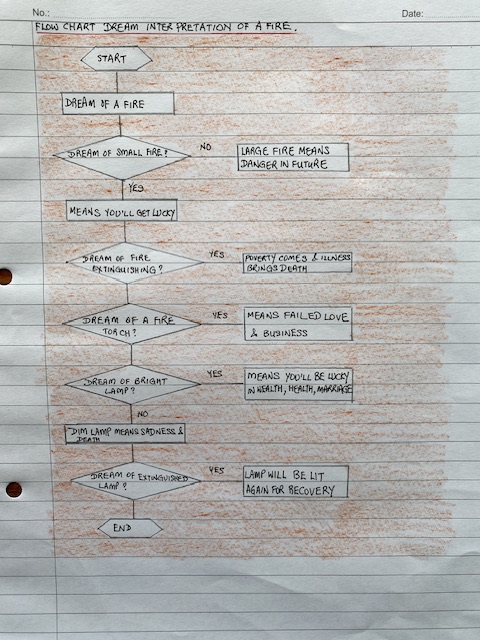 No.:
Date:
FLOW CHART DREAM INTERPRETATION OF A FIRE.
START
DREAM OF A FIRE
DREAM OF SMALL FIRE?
NO
LARGE FIRE MEANS
DANGER IN FUTURE
YES
MEANS YOU'LL GET LUCKY
DREAM OF FIRE
EXTINGUISHING?
YES
POVERTY COMES & ILLNESS
BRINGS DEATH
DREAM OF A FIRE
TORCH?
YES
MEANS FAILED LOVE
& BUSINESS
DREAM OF BRIGHT
LAMP?
YES
MEANS YOU'LL BE LUCKY
IN WEALTH, HEALTH, MARRIAGE
NO
DIM LAMP MEANS SADNESS &
DEATH
DREAM OF EXTINGUISHED
LAMP?
YES
LAMP WILL BE LIT
AGAIN FOR RECOVERY
END